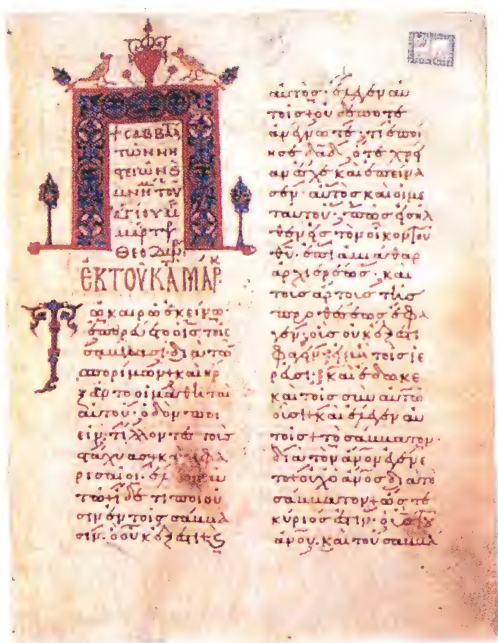 + ΣΑΒΒΑ
ΤΩΝ ΝΗ
ΣΤΕΙΩΝ Ε
ΜΝΗ ΤΟΥ
ΑΓΙΟΥ Μ
ΜΑΡΤΡ
ΘΕΟΔΩΡ
ΕΚ ΤΟΥ ΚΑΤΑ ΜΑΡ
Τῶ καιρῶ ἐκείνω
ἐπορεύετο ὁ ις τοῖς
σάββασι διὰ τῶν
σπορίμων· καὶ ἤρ
ξαντο οἱ μαθηταὶ
αὐτοῦ· ὁδὸν ποι
εῖν· τίλλοντες τοὺς
στάχυας· καὶ οἱ φα
ρισαῖοι ἔλεγον αὐ
τῶ· ἴδε τί ποιοῦ
σιν ἐν τοῖς σάββα
σιν· ὃ οὐκ ἔξεστι· κ
αὐτὸς ἔλεγεν αὐ
τοῖς· οὐδέποτε
ἀνέγνωτε· τί ἐποί
ησε δαδ· ὅτε χρεί
αν ἔσχε καὶ ἐπείνα
σεν· αὐτὸς καὶ οἱ με
τ αὐτοῦ· πῶς εἰσῆλ
θεν εἰς τὸν οἶκον τοῦ
θυ· ἐπὶ ἀβιάθαρ
ἀρχιερέως· καὶ
τοὺς ἄρτους τῆς
προθέσεως ἔφα
γεν· οὓς οὐκ ἔξεστι
φαγεῖν εἰ μὴ τοῖς ἱε
ρεῦσι· καὶ ἔδωκε
καὶ τοῖς σὺν αὐτῶ
οὖσι· καὶ ἔλεγεν αὐ
τοῖς· τὸ σάββατον
διὰ τὸν ανον ἐγένε
το· οὐχ ὁ ανος διὰ τὸ
σάββατον· ὥστε
κύριός ἐστιν· ὁ υς τοῦ
ανου· καὶ τοῦ σαββά